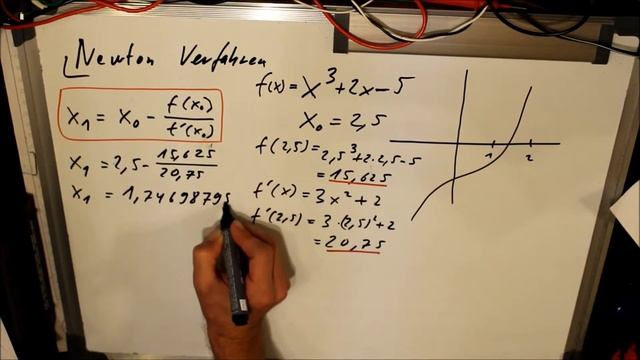 Newton Verfahren
x₁ = x₀ - f(x₀)/f'(x₀)
x₁ = 2,5 - 15,625/20,75
x₁ = 1,74698795
f(x) = x³ + 2x - 5
x₀ = 2,5
f(2,5) = 2,5³ + 2·2,5 - 5
= 15,625
f'(x) = 3x² + 2
f'(2,5) = 3·(2,5)² + 2
= 20,75
1 2